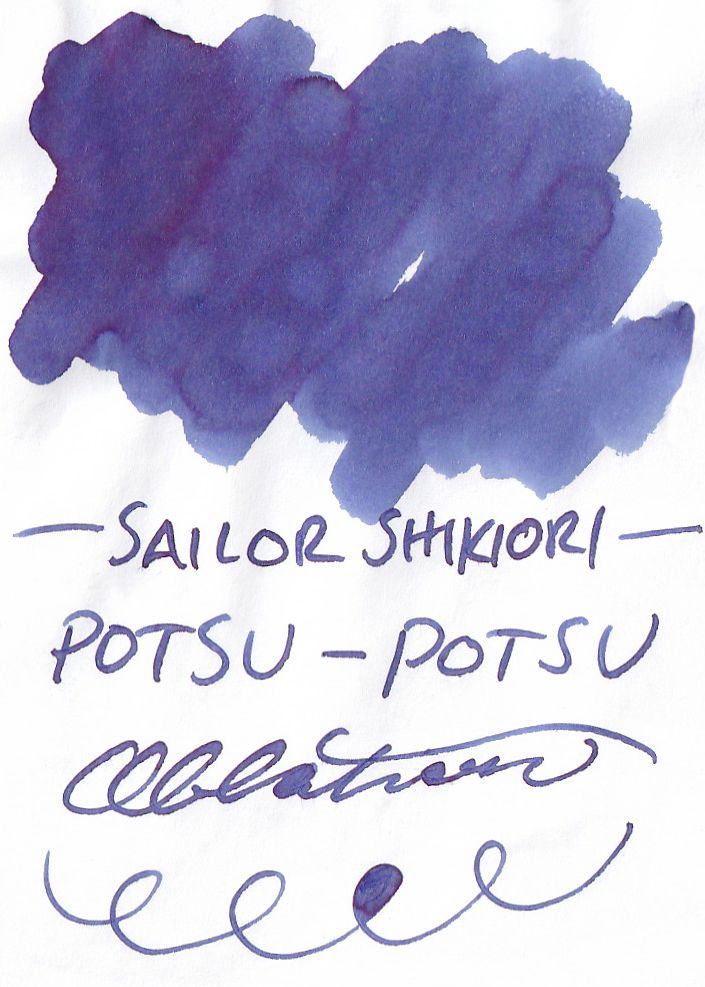 — SAILOR SHIKIORI —
POTSU - POTSU
Oblation